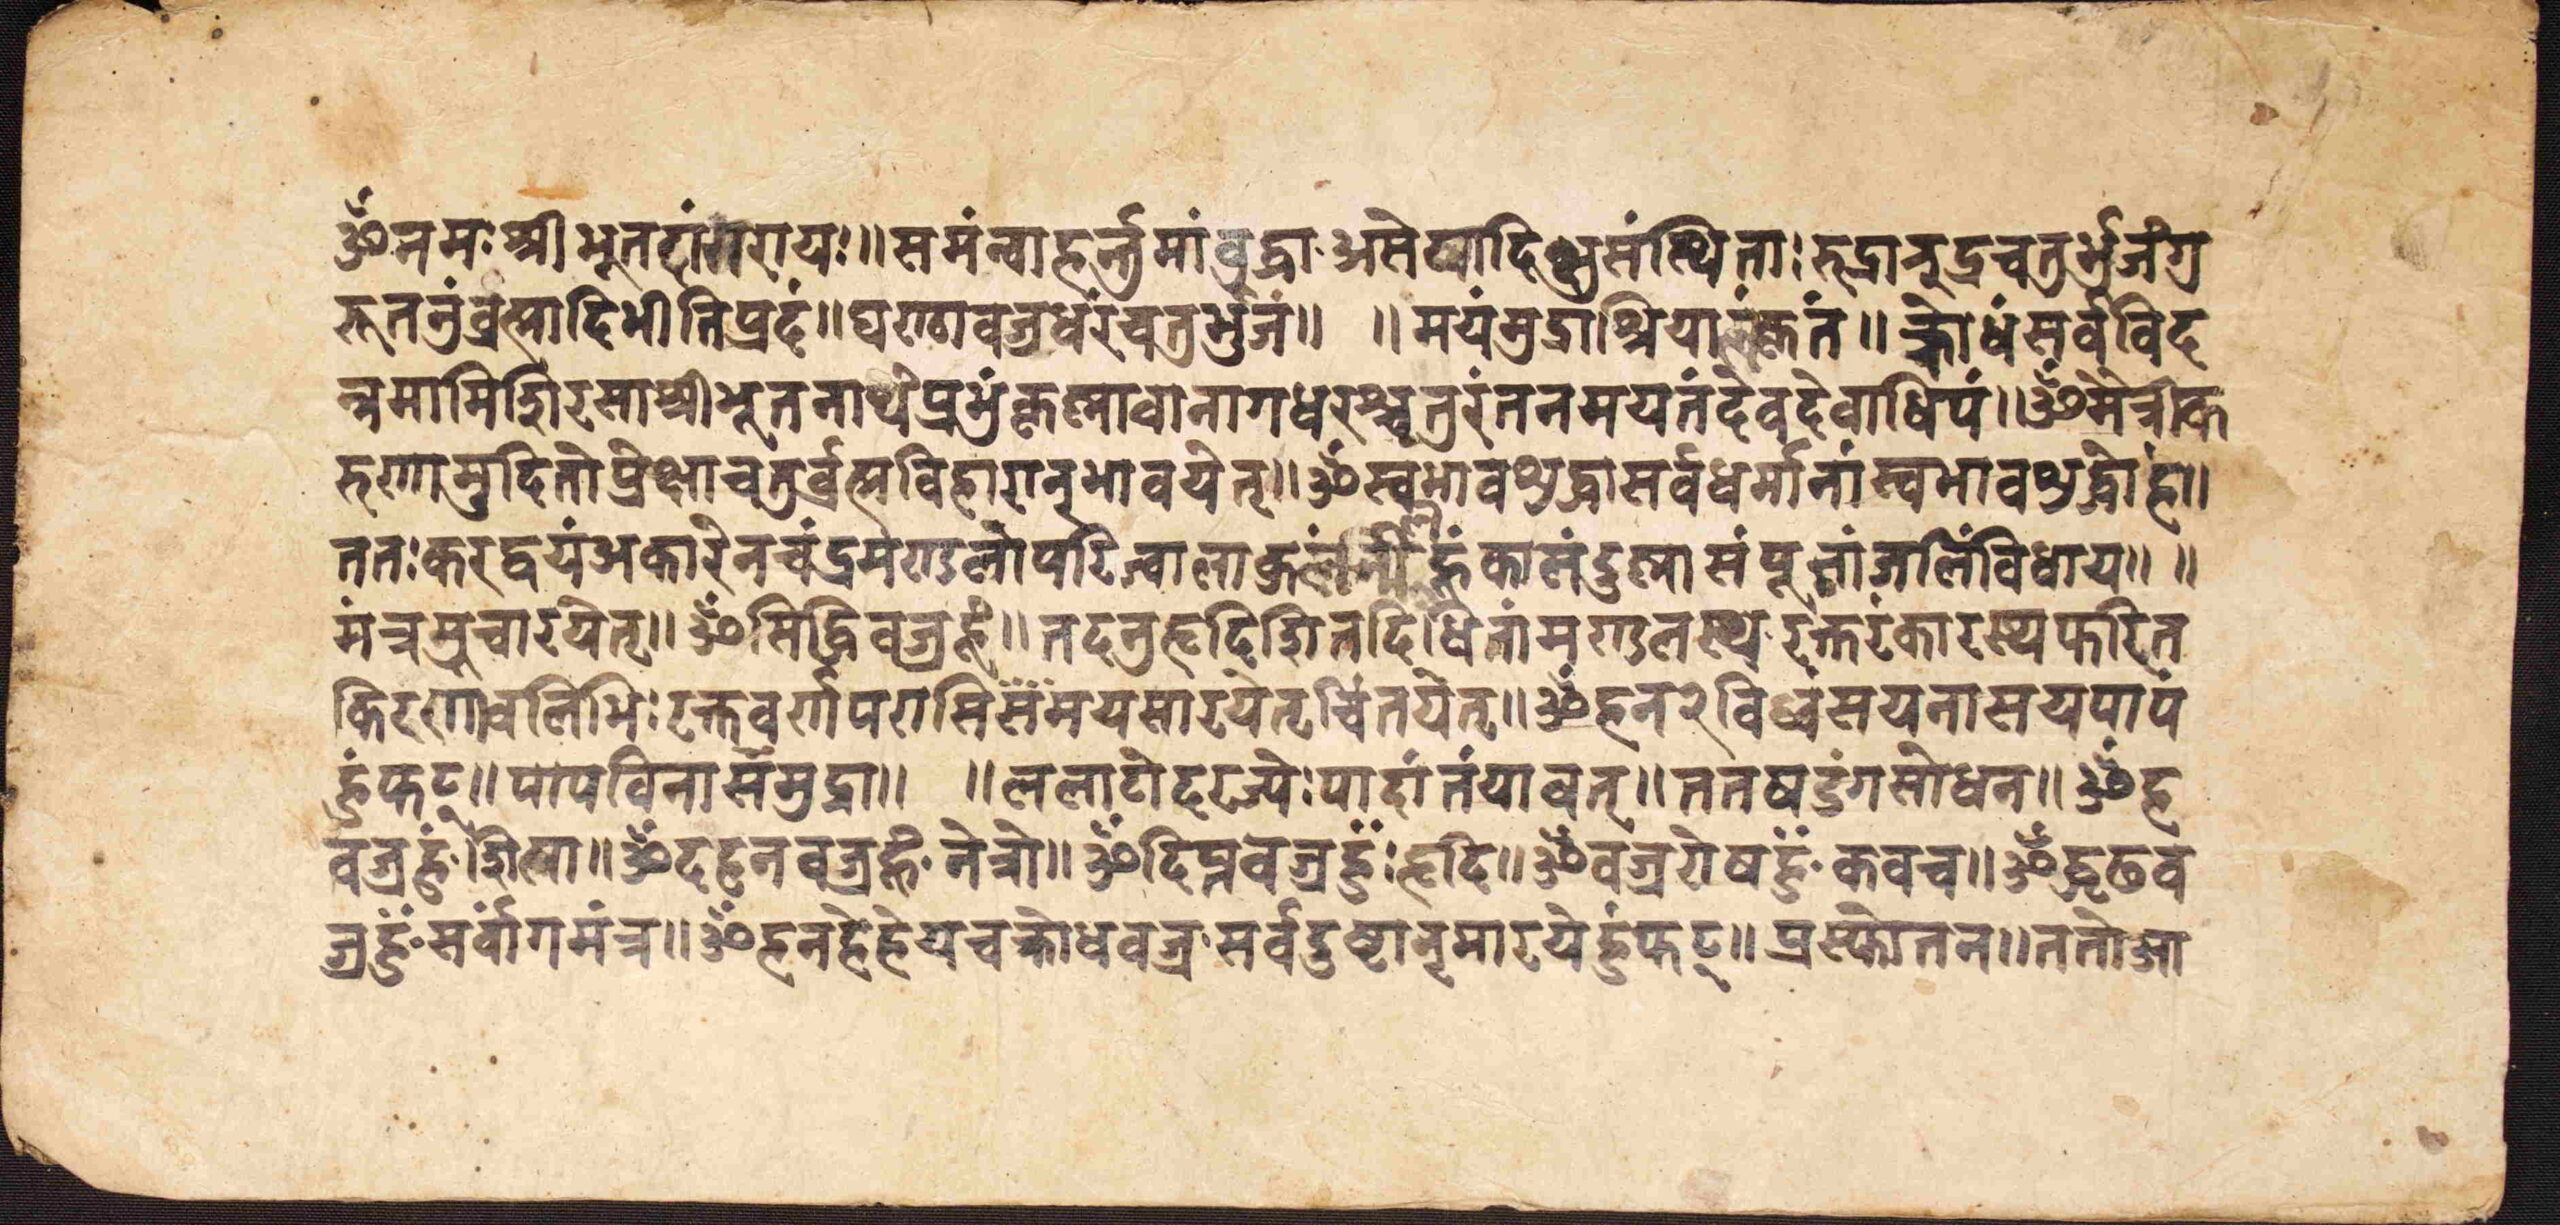 ॐ नमः श्रीभूतडांमराय ः॥ समंन्वाहर्न्तुमां वुद्धा असेषादिक्षुसंस्थिताः रुद्रानुद्रचतुर्भुजंग्र
स्ततनुं व्रह्मादिभीतिप्रदं॥ घण्ठावज्रधरं चतुर्भुजं॥ ॥मयंमुद्राश्रियालंकृतं॥ क्रोधं सर्वविद
न्नमामिशिरसा श्रीभूतनाथं प्रभुं कृष्णावानागधरश्चतुरंतनमयतंदेवदेवाधिपं॥ ॐ मैत्रीक
रुणामुदितोप्रेक्षाचतुर्व्रह्मविहारान्भावयेत्॥ ॐ स्वभावशुद्धासर्वधर्मानां स्वभावशुद्धोहं॥
ततः करद्वयं अकारेनचंद्रमण्डलोपरिज्वालाकुलं हूंकालंदृष्ट्वा संपूतांजलिं विधाय॥ ॥
मंत्रमुचारयेत्॥ ॐ सिद्धिवज्रहूं॥ तदनुहृदिशितदिधितांमण्डलस्थ रक्तरंकारस्यफरित
किरणावलिभिः रक्तवर्णपरासिसंमयसारयेत्चिंतयेत्॥ ॐ हन२विध्वंसयनासयपापं
हूंफट्॥ पापविनासमुद्रा॥ ॥ललाटोदरज्येः पादांतंयावत्॥ ततषडंगसोधन॥ ॐ ह
वज्रहूं शिखा॥ ॐ दहनवज्रहूं नेत्रो॥ ॐ दिप्तवज्रहूंः हृदि॥ ॐ वज्ररोषहूं कवच॥ ॐ दृढव
ज्रहूं सर्वांगमंत्र॥ ॐ हनहेहेयचक्रोधवज्र सर्वदुष्टान्मारयेहूंफट्॥ प्रस्फोतन॥ ततोज्ञा